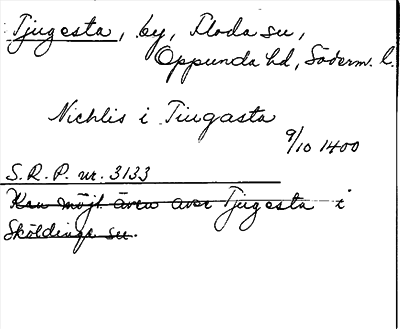 Tjugesta, by, Floda sn,
Oppunda hd, Söderm. l.
Nichlis i Tiugasta
9/10 1400
S.R.P. nr. 3133
Kan möjl. även avse Tjugesta i
Sköldinge sn.